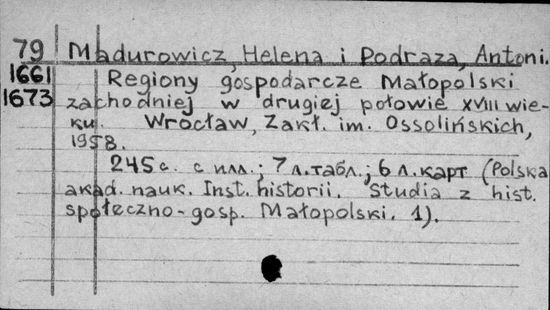 79 Madurowicz, Helena i Podraza, Antoni.
1661 Regiony gospodarcze Małopolski
1673 zachodniej w drugiej połowie XVIII wie-
ku. Wrocław, Zakł. im. Ossolińskich,
1958.
245 с. с илл.; 7 л. табл.; 6 л. карт (Polska
akad. nauk. Inst. historii. Studia z hist.
społeczno-gosp. Małopolski. 1).